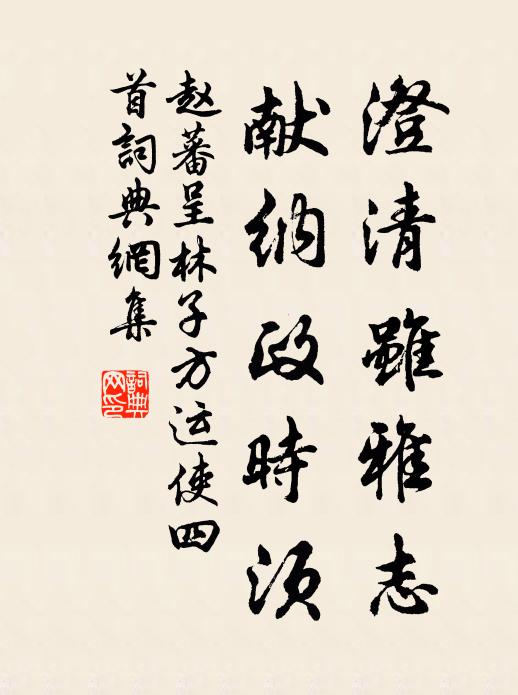 澄清雖雅志
献纳政時須
赵蕃呈林子方运使四
首詞典網集
詞典
网印